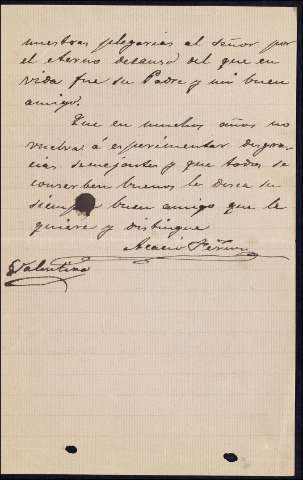 nuestras plegarias al señor por
el eterno descanso del que en
vida fue su Padre y mi buen
amigo.
Que en muchos años no
vuelva á esperimentar desgra-
cias semejantes y que todos se
conserben buenos le desea su
siempre buen amigo que le
quiere y distingue
Acacio
Valentina